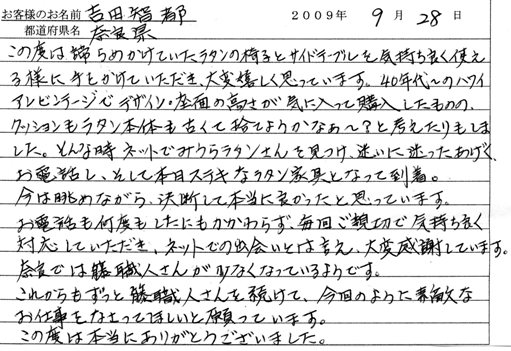 お客様のお名前 吉田智都 2009年 9月 28日
都道府県名 奈良県
この度は諦らめかけていたラタンの椅子とサイドテーブルを気持ち良く使え
る様に手をかけていただき、大変嬉しく思っています。40年代〜のハワイ
アンビンテージでデザイン・座面の高さが気に入って購入したものの、
クッションもラタン本体も古くて捨てようかなぁ〜?と考えたりもしま
した。そんな時ネットでみうらラタンさんを見つけ、迷いに迷ったあげく、
お電話し、そして本日ステキなラタン家具となって到着。
今は眺めながら、決断して本当に良かったと思っています。
お電話も何度もしたにもかかわらず、毎回ご親切で気持ち良く
対応していただき、ネットでの出会いとは言え、大変感謝しています。
奈良では籐職人さんが少なくなっているようです。
これからもずっと籐職人さんを続けて、今回のように素敵な
お仕事をなさってほしいと願っています。
この度は本当にありがとうございました。